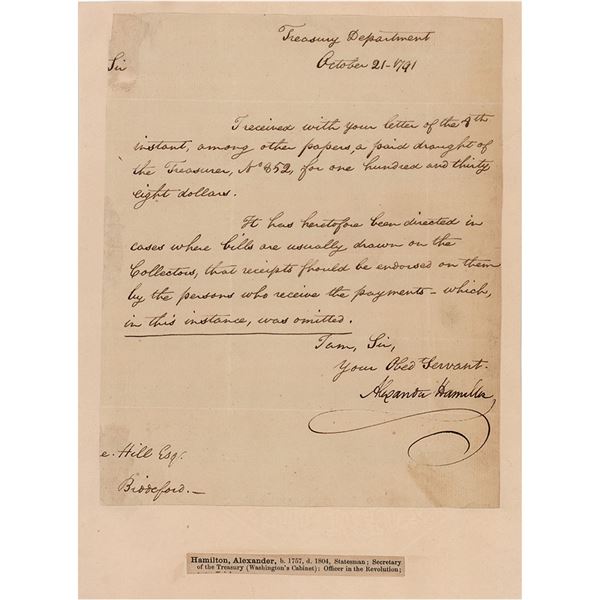 Treasury Department
October 21-1791
Sir
I received with your letter of the 8th
instant, among other papers, a paid draught of
the Treasurer, No 852, for one hundred and thirty
eight dollars.
It has heretofore been directed in
cases where bills are usually drawn on the
Collectors, that receipts should be endorsed on them
by the persons who receive the payments - which,
in this instance, was omitted.
I am, Sir,
Your Obed Servant.
Alexander Hamilton
e. Hill Esqr.
Biddeford.-
Hamilton, Alexander, b. 1757, d. 1804, Statesman; Secretary
of the Treasury (Washington's Cabinet); Officer in the Revolution;